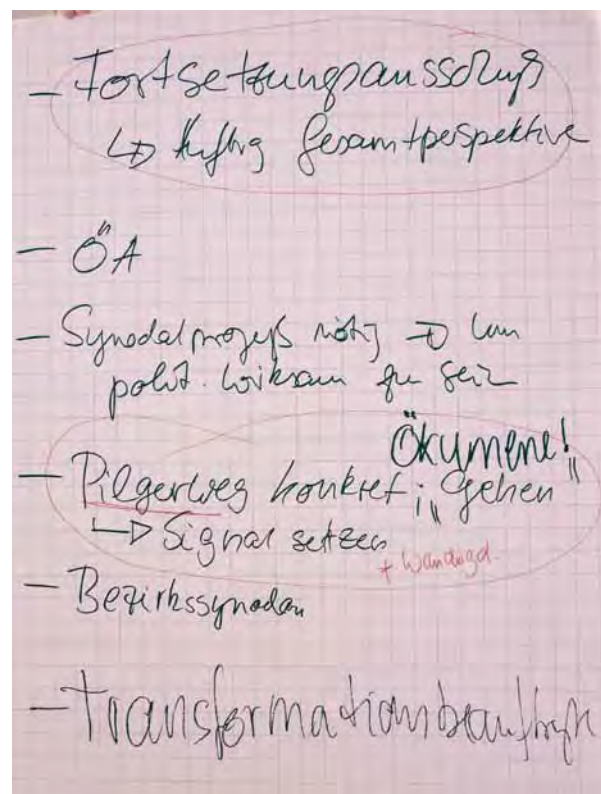 - Fortsetzungsausschuß
↳ Auftrag Gesamtperspektive
- ÖA
- Synodalprozeß nötig → um
polit. wirksam zu sein
Ökumene!
- Pilgerweg konkret; „gehen"
↳ Signal setzen
+
- Bezirkssynoden
- Transformationsbeauftragte